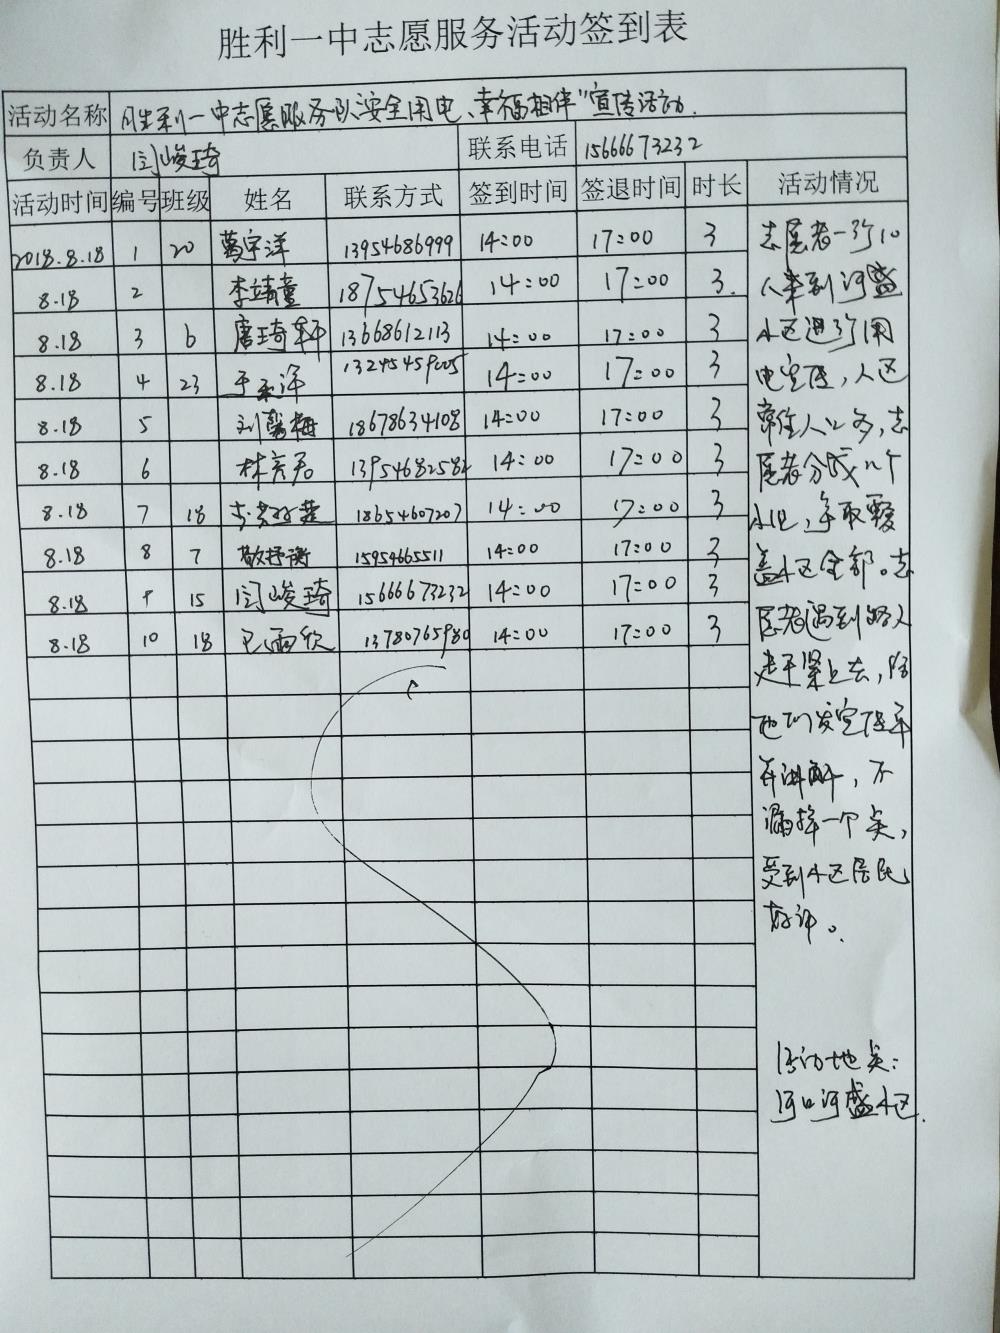 胜利一中志愿服务活动签到表
活动名称 胜利一中志愿服务队"安全用电、幸福相伴"宣传活动.
负责人 闫峻琦 联系电话 15666673232
活动时间 编号 班级 姓名 联系方式 签到时间 签退时间 时长 活动情况
2018.8.18 1 20 葛宇洋 13954686999 14:00 17:00 3
8.18 2 李靖童 18754653626 14:00 17:00 3.
8.18 3 6 唐琦轩 13668612113 14:00 17:00 3
8.18 4 23 于 洋 14:00 17:00 3
8.18 5 刘 梅 18678634108 14:00 17:00 3
8.18 6 林 君 13954682582 14:00 17:00 3
8.18 7 18 李 18654607207 14:00 17:00 3
8.18 8 7 敬抒衡 15954665511 14:00 17:00 3
8.18 9 15 闫峻琦 15666673232 14:00 17:00 3
8.18 10 18 巴雨欣 13780765980 14:00 17:00 3
志愿者一行10
人来到河盛
小区进行用
电宣传,
常住人口多,志
愿者分成几个
小组,争取覆
盖小区全部。志
愿者遇到路人
赶紧上去,给
他们发宣传单
并讲解,不
漏掉一个点,
受到小区居民
好评。
活动地点:
河口河盛小区.